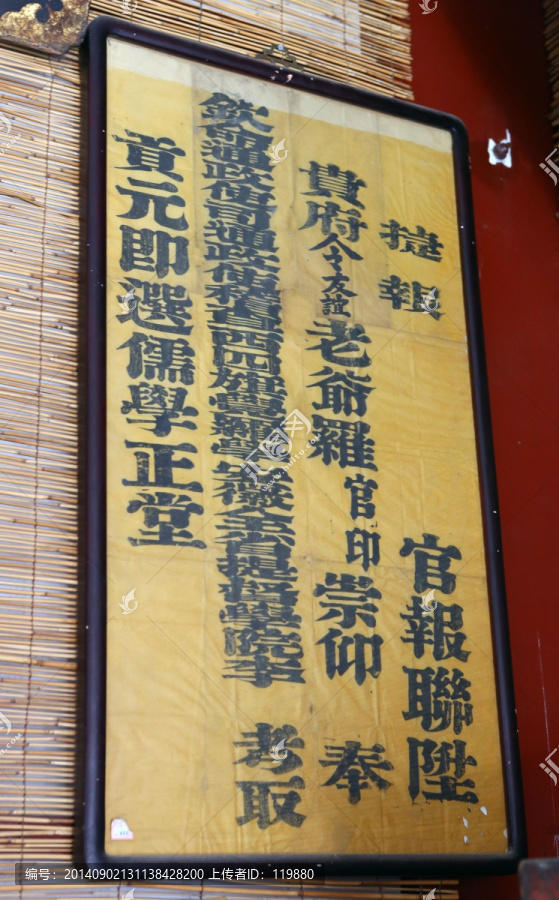 捷報
官報聯陞
貴府令友誼老爺羅官印崇仰 奉
欽命通政使司通政使稽查西四旗覺羅學安徽全省提督學院李 考取
貢元即選儒學正堂
编号：20140902131138428200 上传者ID：119880